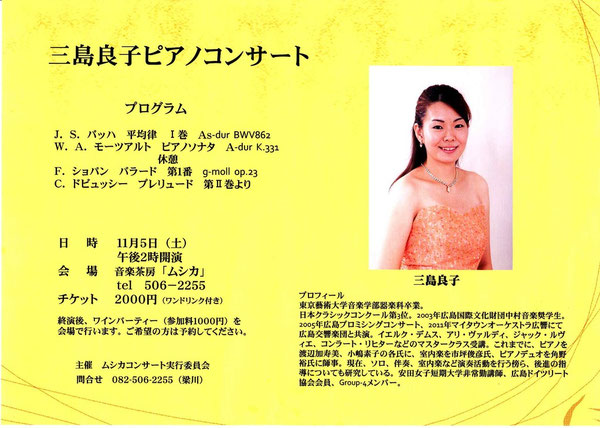 三島良子ピアノコンサート
プログラム
J. S. バッハ 平均律 Ⅰ巻 As-dur BWV862
W. A. モーツアルト ピアノソナタ A-dur K.331
休憩
F. ショパン バラード 第1番 g-moll op.23
C. ドビュッシー プレリュード 第Ⅱ巻より
日 時 11月5日（土）
午後2時開演
会 場 音楽茶房「ムシカ」
tel 506−2255
チケット 2000円（ワンドリンク付き）
終演後、ワインパーティー（参加料1000円）を
会場で行います。ご希望の方は予約してください。
主催 ムシカコンサート実行委員会
問合せ 082-506-2255（梁川）
三島良子
プロフィール
東京藝術大学音楽学部器楽科卒業。
日本クラシックコンクール第3位。2003年広島国際文化財団中村音楽奨学生。
2005年広島プロミシングコンサート、2011年マイタウンオーケストラ広響にて
広島交響楽団と共演。イエルク・デムス、アリ・ヴァルディ、ジャック・ルヴ
ィエ、コンラート・リヒターなどのマスタークラス受講。これまでに、ピアノを
渡辺加寿美、小嶋素子の各氏に、室内楽を市坪俊彦氏、ピアノデュオを角野
裕氏に師事。現在、ソロ、伴奏、室内楽など演奏活動を行う傍ら、後進の指
導についても研究している。安田女子短期大学非常勤講師、広島ドイツリート
協会会員、Group-4メンバー。